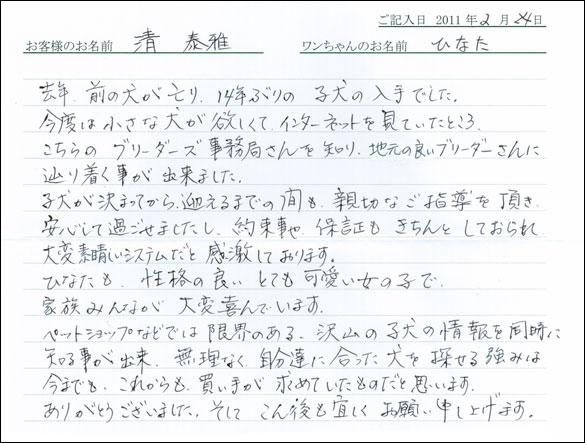 ご記入日 2011年2月24日
お客様のお名前 清 泰雅 ワンちゃんのお名前 ひなた
去年、前の犬が亡り、14年ぶりの 子犬の入手でした。
今度は小さな犬が欲しくて、インターネットを見ていたところ、
こちらの ブリーダーズ事務局さんを知り、地元の良いブリーダーさんに
辿り着く事が出来ました。
子犬が決まってから、迎えるまでの間も、親切なご指導を頂き、
安心して過ごせましたし、約束事や、保証も きちんと しておられ、
大変素晴しいシステムだと 感激しております。
ひなたも、性格の良い とても可愛い女の子で、
家族みんなが 大変喜んでいます。
ペットショップなどでは限界のある、沢山の子犬の情報を同時に
知る事が出来、無理なく、自分達に合った犬を探せる強みは
今までも、これからも、買い手が求めていたものだと思います。
ありがとうございました。そして こん後も宜しく お願い申し上げます。